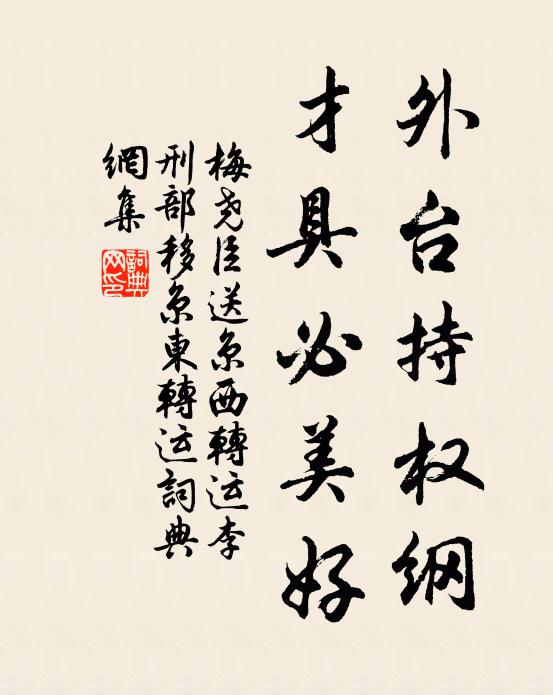 外台持权纲
才具必美好
梅尧臣送京西轉运李
刑部移京東轉运詞典
網集
詞典网印